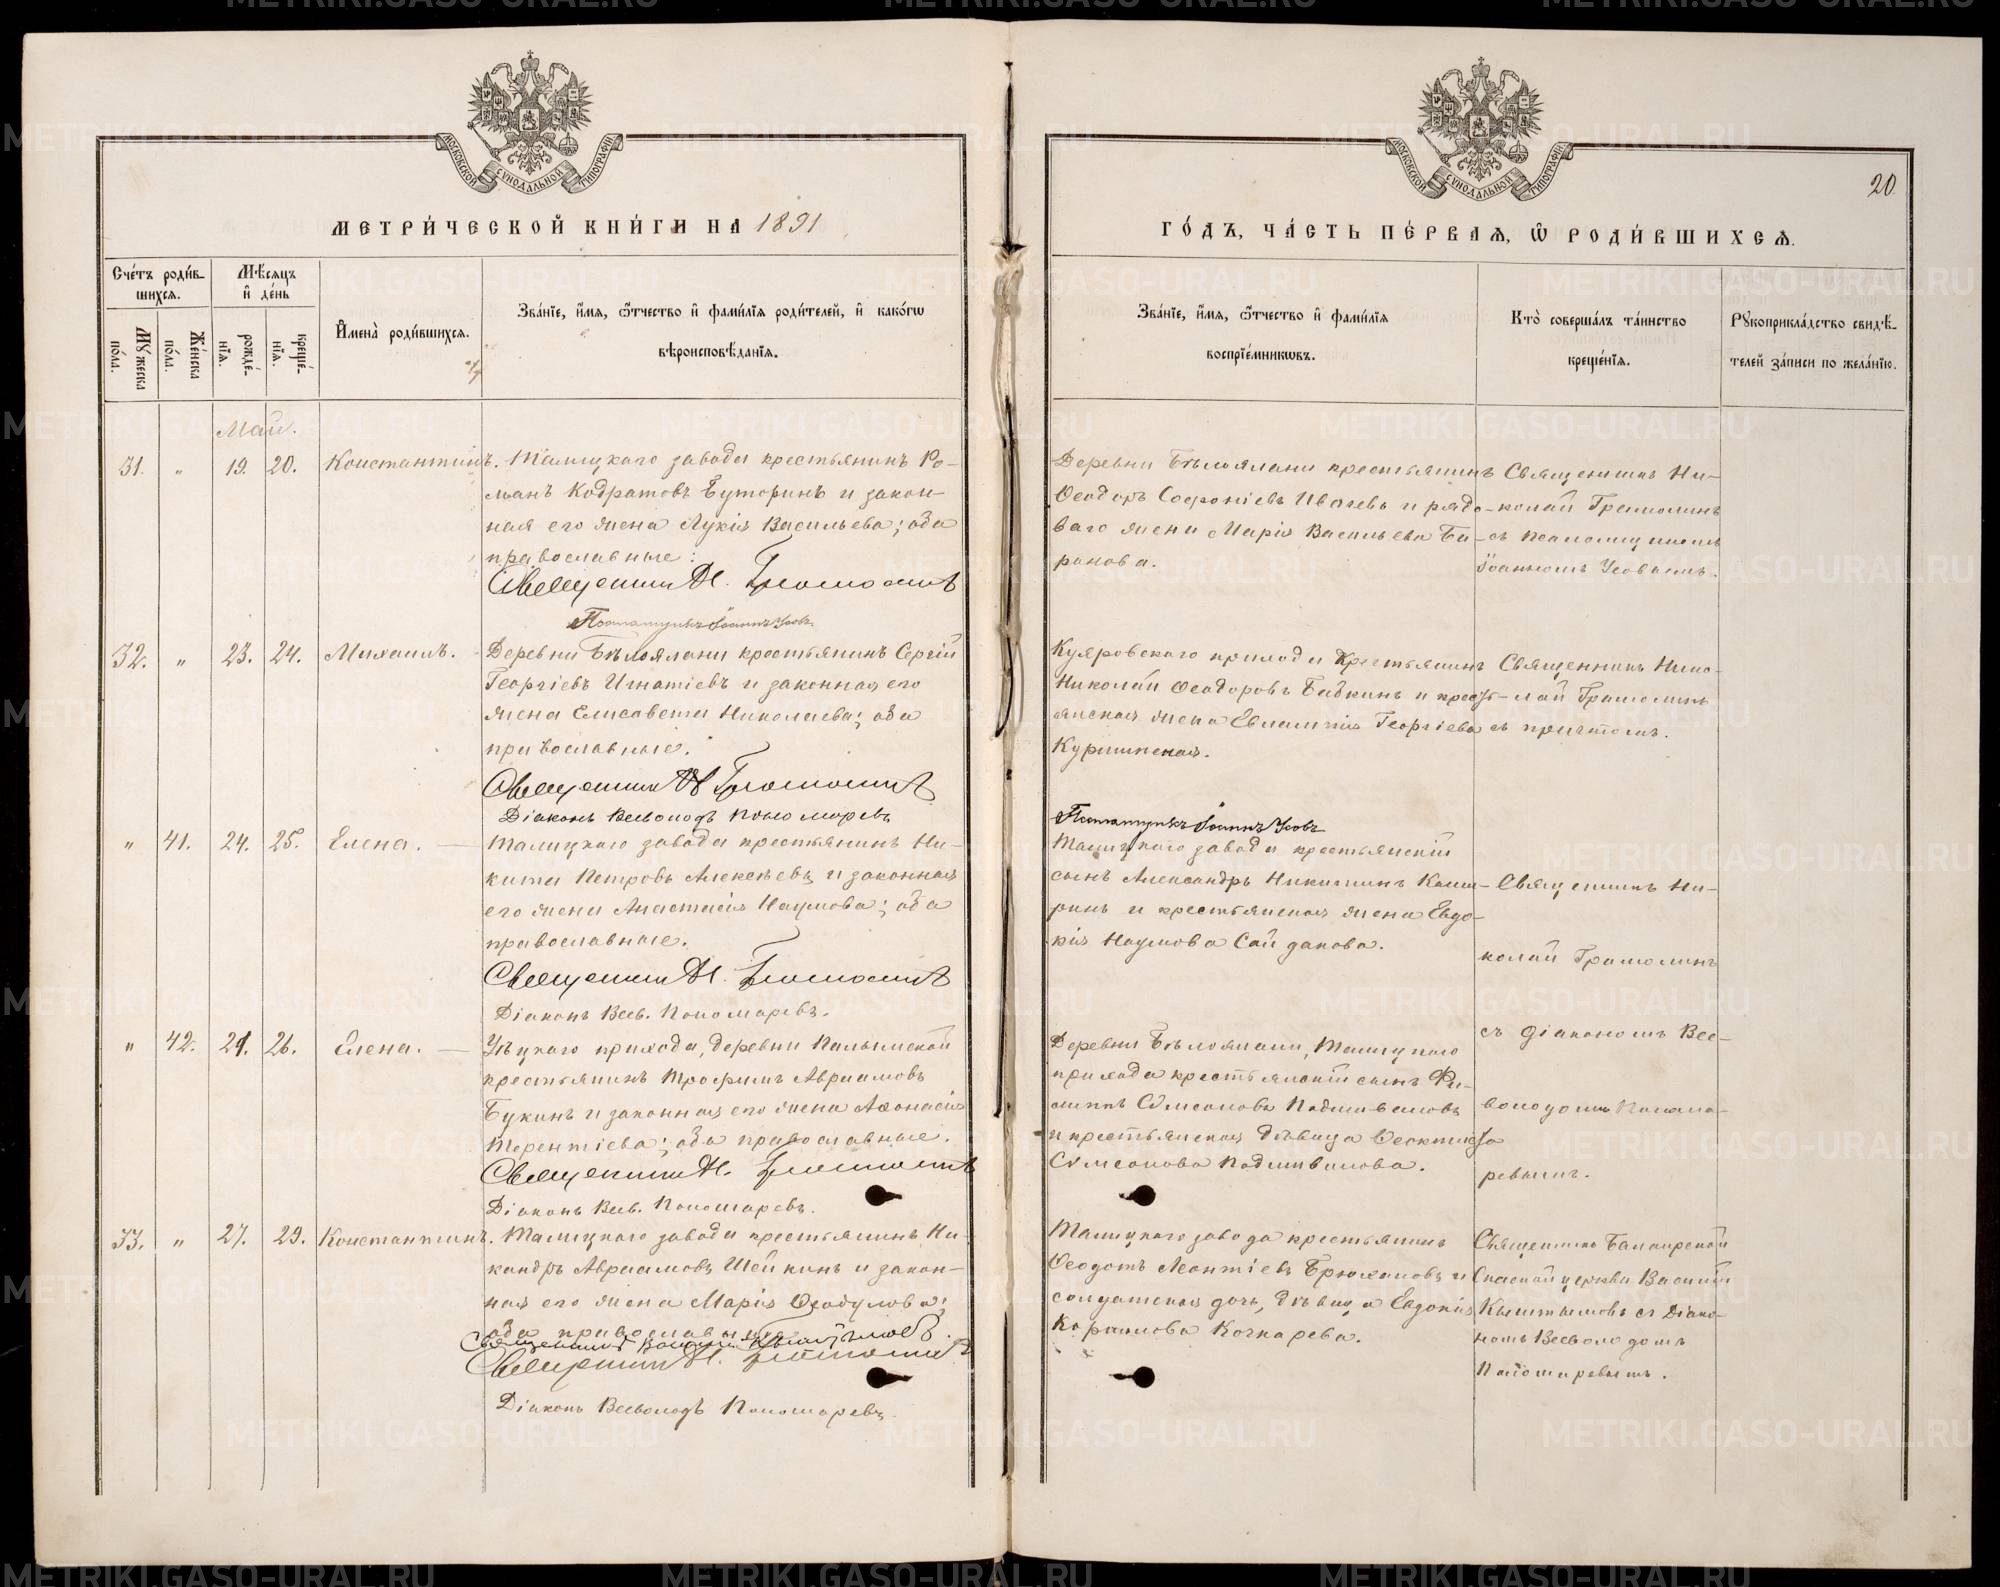 МОСКОВСКОЙ СѴНОДАЛЬНОЙ ТИПОГРАФІИ
МЕТРИ́ЧЕСКОЙ КНИ́ГИ НА 1891
Сче́тъ роди́в-
шихся.
Му́жеска по́ла.
Же́нска по́ла.
Мѣ́сяцъ
и҆ де́нь
рожде́-
нїя.
креще́-
нїя.
И҆мена̀ роди́вшихся.
Зва́нїе, и҆́мя, ѻ҆́тчество и҆ фами́лїя роди́телей, и҆ како́гѡ
вѣроисповѣ́данїя.
Май.
31. " 19. 20. Константинъ. Талицкаго завода крестьянинъ Ро-
манъ Кодратовъ Буторинъ и закон-
ная его жена Лукія Васильева; оба
православные:
Священникъ Н. Грамолинъ
Псаломщикъ Іоаннъ Усовъ.
32. " 23. 24. Михаилъ. Деревни Бѣлоялани крестьянинъ Сергій
Георгіевъ Игнатіевъ и законная его
жена Елисавета Николаева; оба
православные.
Священникъ Н. Грамолинъ
Діаконъ Всеволодъ Пономаревъ
" 41. 24. 25. Елена. Талицкаго завода крестьянинъ Ни-
кита Петровъ Алексѣевъ и законная
его жена Анастасія Наумова; оба
православные.
Священникъ Н. Грамолинъ
Діаконъ Всев. Пономаревъ.
" 42. 21. 26. Елена. Уѣцкаго прихода, деревни
крестьянинъ Трофимъ Авраамовъ
Букинъ и законная его жена Аѳанасія
Терентіева; оба православные.
Священникъ Н. Грамолинъ
Діаконъ Всев. Пономаревъ.
33. " 27. 29. Константинъ. Талицкаго завода крестьянинъ Ни-
кандръ Авраамовъ Шейкинъ и закон-
ная его жена Марія Ѳеодулова;
оба православные.
Священникъ Василій Кыштымовъ
Священникъ Н. Грамолинъ
Діаконъ Всеволодъ Пономаревъ.
МОСКОВСКОЙ СѴНОДАЛЬНОЙ ТИПОГРАФІИ
20.
ГО́ДЪ, ЧА́СТЬ ПЕ́РВАЯ, Ѽ РОДИ́ВШИХСЯ.
Зва́нїе, и҆́мя, ѻ҆́тчество и҆ фами́лїя
воспрїе́мникѡвъ.
Кто̀ соверша́лъ та́инство
креще́нїя.
Рꙋкоприкла́дство свидѣ́-
телей за́писи по жела́нїю.
Деревни Бѣлоялани крестьянинъ
Ѳеодоръ Софоніевъ Ивачевъ и рядо-
ваго жена Марія Васильева Ба-
ранова.
Священникъ Ни-
колай Грамолинъ
съ псаломщикомъ
Іоанномъ Усовымъ.
Куяровскаго прихода Крестьянинъ
Николай Ѳеодоровъ Бабкинъ и кресть-
янская жена Евлампія Георгіева
Священникъ Нико-
лай Грамолинъ
съ причтомъ.
Псаломщикъ Іоаннъ Усовъ
Талицкаго завода крестьянскій
сынъ Александръ Никитинъ Каши-
ринъ и крестьянская жена Евдо-
кія Наумова Сайданова.
Священникъ Ни-
колай Грамолинъ
съ діакономъ Все-
володомъ Понома-
ревымъ.
Деревни Бѣлоялани, Талицкаго
прихода крестьянскій сынъ Фи-
липпъ Сѵмеоновъ Подшиваловъ
и крестьянская дѣвица Ѳеоктиста
Сѵмеонова Подшивалова.
Талицкаго завода крестьянинъ
Ѳеодотъ Леонтіевъ Брюхановъ и
солдатская дочь, дѣвица Евдокія
Корнилова Кочнарева.
Священникъ Балаирской
Спаской церкви Василій
Кыштымовъ съ Діако-
номъ Всеволодомъ
Пономаревымъ.
METRIKI.GASO-URAL.RU